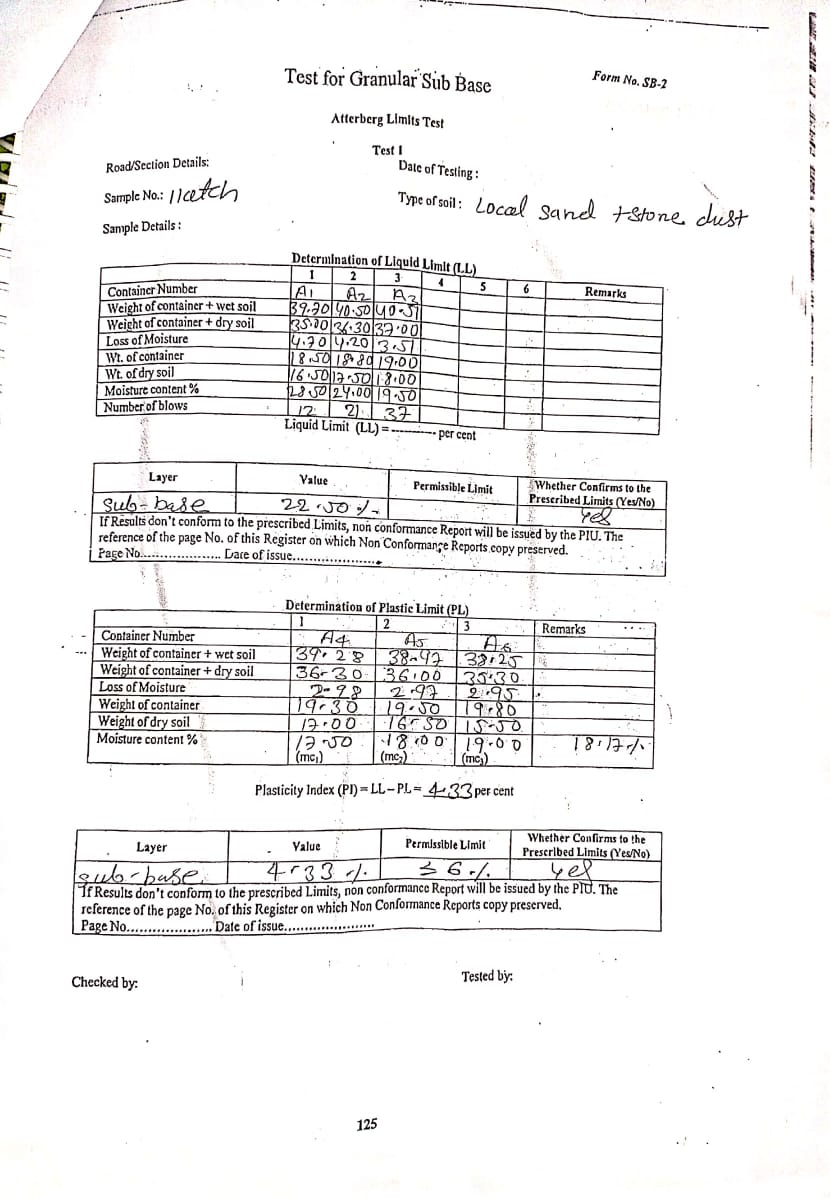 Test for Granular Sub Base
Form No. SB-2
Atterberg Limits Test
Test I
Road/Section Details:
Date of Testing :
Sample No.: 11cetch
Type of soil : Local sand + stone dust
Sample Details :
Determination of Liquid Limit (LL)
1 2 3 4 5 6 Remarks
Container Number A1 A2 A3
Weight of container + wet soil 39.70 40.50 40.51
Weight of container + dry soil 35.00 36.30 37.00
Loss of Moisture 4.70 4.20 3.51
Wt. of container 18.50 18.80 19.00
Wt. of dry soil 16.50 17.50 18.00
Moisture content % 28.50 24.00 19.50
Number of blows 12 21 37
Liquid Limit (LL) = ---------- per cent
Layer Value Permissible Limit Whether Confirms to the Prescribed Limits (Yes/No)
Sub-base 22.50 %. Yes
If Results don't conform to the prescribed Limits, non conformance Report will be issued by the PIU. The
reference of the page No. of this Register on which Non Conformance Reports copy preserved.
Page No.................. Date of issue....................
Determination of Plastic Limit (PL)
1 2 3 Remarks
Container Number A4 A5 A6
Weight of container + wet soil 39.28 38.97 38.25
Weight of container + dry soil 36.30 36.00 35.30
Loss of Moisture 2.98 2.97 2.95
Weight of container 19.30 19.50 19.80
Weight of dry soil 17.00 16.50 15.50
Moisture content % 17.50 18.00 19.00 18.17%
(mc₁) (mc₂) (mc₃)
Plasticity Index (PI) = LL – PL = 4.33 per cent
Layer Value Permissible Limit Whether Confirms to the Prescribed Limits (Yes/No)
sub-base. 4.33 %. ≤ 6 %. yes
If Results don't conform to the prescribed Limits, non conformance Report will be issued by the PIU. The
reference of the page No. of this Register on which Non Conformance Reports copy preserved.
Page No.................... Date of issue......................
Checked by:
Tested by:
125